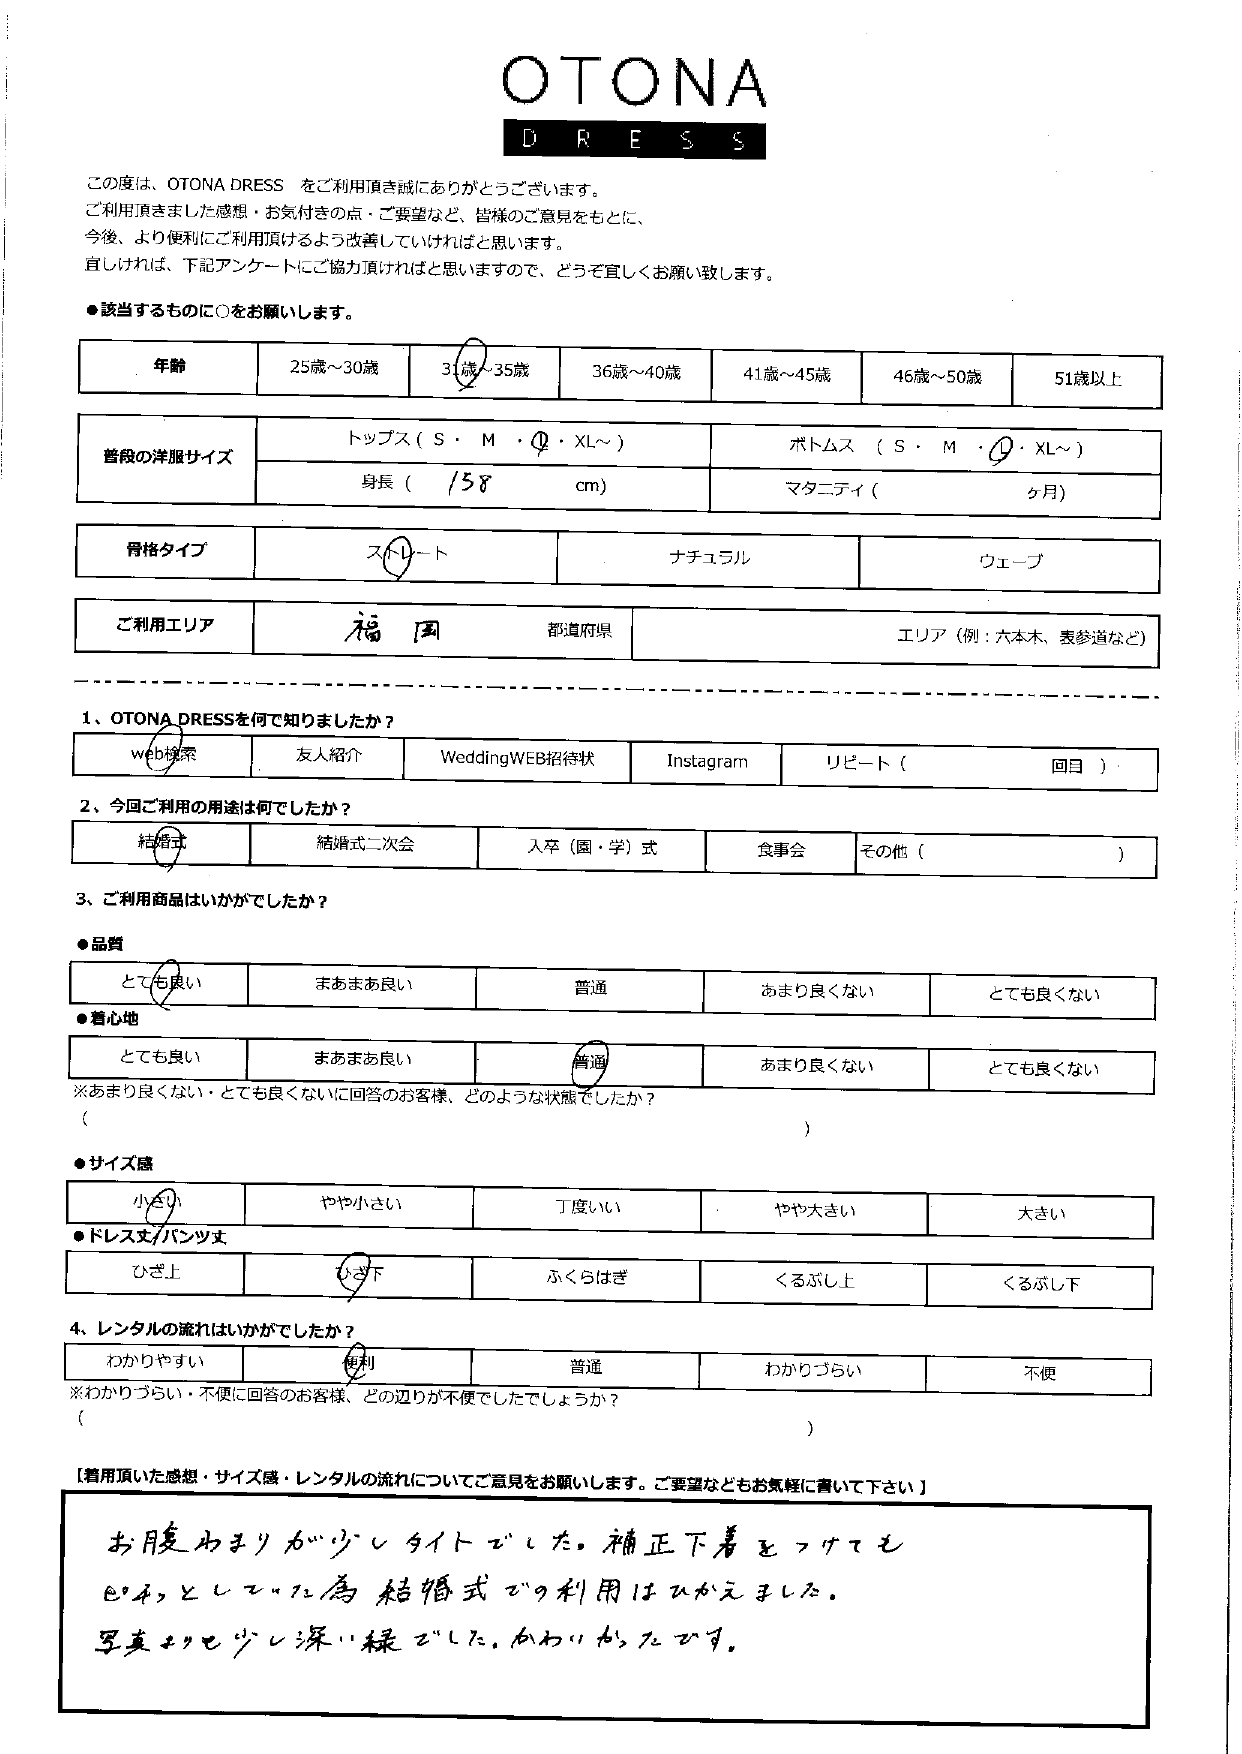 OTONA
DRESS
この度は、OTONA DRESS をご利用頂き誠にありがとうございます。
ご利用頂きました感想・お気付きの点・ご要望など、皆様のご意見をもとに、
今後、より便利にご利用頂けるよう改善していければと思います。
宜しければ、下記アンケートにご協力頂ければと思いますので、どうぞ宜しくお願い致します。
●該当するものに○をお願いします。
年齢 25歳～30歳 31歳～35歳 36歳～40歳 41歳～45歳 46歳～50歳 51歳以上
普段の洋服サイズ トップス( S ・ M ・ L ・ XL～ ) ボトムス ( S ・ M ・ L ・ XL～ )
身長 ( 158 cm) マタニティ ( ヶ月)
骨格タイプ ストレート ナチュラル ウェーブ
ご利用エリア 福岡 都道府県 エリア（例：六本木、表参道など）
1、OTONA DRESSを何で知りましたか？
web検索 友人紹介 WeddingWEB招待状 Instagram リピート（ 回目 ）
2、今回ご利用の用途は何でしたか？
結婚式 結婚式二次会 入卒（園・学）式 食事会 その他（ ）
3、ご利用商品はいかがでしたか？
●品質
とても良い まあまあ良い 普通 あまり良くない とても良くない
●着心地
とても良い まあまあ良い 普通 あまり良くない とても良くない
※あまり良くない・とても良くないに回答のお客様、どのような状態でしたか？
( )
●サイズ感
小さい やや小さい 丁度いい やや大きい 大きい
●ドレス丈/パンツ丈
ひざ上 ひざ下 ふくらはぎ くるぶし上 くるぶし下
4、レンタルの流れはいかがでしたか？
わかりやすい 便利 普通 わかりづらい 不便
※わかりづらい・不便に回答のお客様、どの辺りが不便でしたでしょうか？
( )
【着用頂いた感想・サイズ感・レンタルの流れについてご意見をお願いします。ご要望などもお気軽に書いて下さい】
お腹わまりが少しタイトでした。補正下着をつけても
ぴちっとしていた為 結婚式での利用はひかえました。
写真よりも少し深い緑でした。かわいかったです。